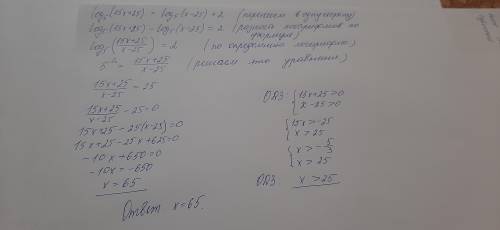 log₅(15x+25) = log₅(x-25) + 2 (перенесем в одну сторону)
log₅(15x+25) - log₅(x-25) = 2 (разность логарифмов по формуле)
log₅(15x+25 / x-25) = 2 (по определению логарифма)
5² = 15x+25 / x-25 (решаем это уравнение)
15x+25 / x-25 = 25
15x+25 / x-25 - 25=0
15x+25 - 25(x-25)=0
15x+25-25x+625=0
-10x+650=0
-10x=-650
x=65
Ответ x=65.
ОДЗ: { 15x+25>0
x-25>0
{ 15x>-25
x>25
{ x>-5/3
x>25
ОДЗ: x>25